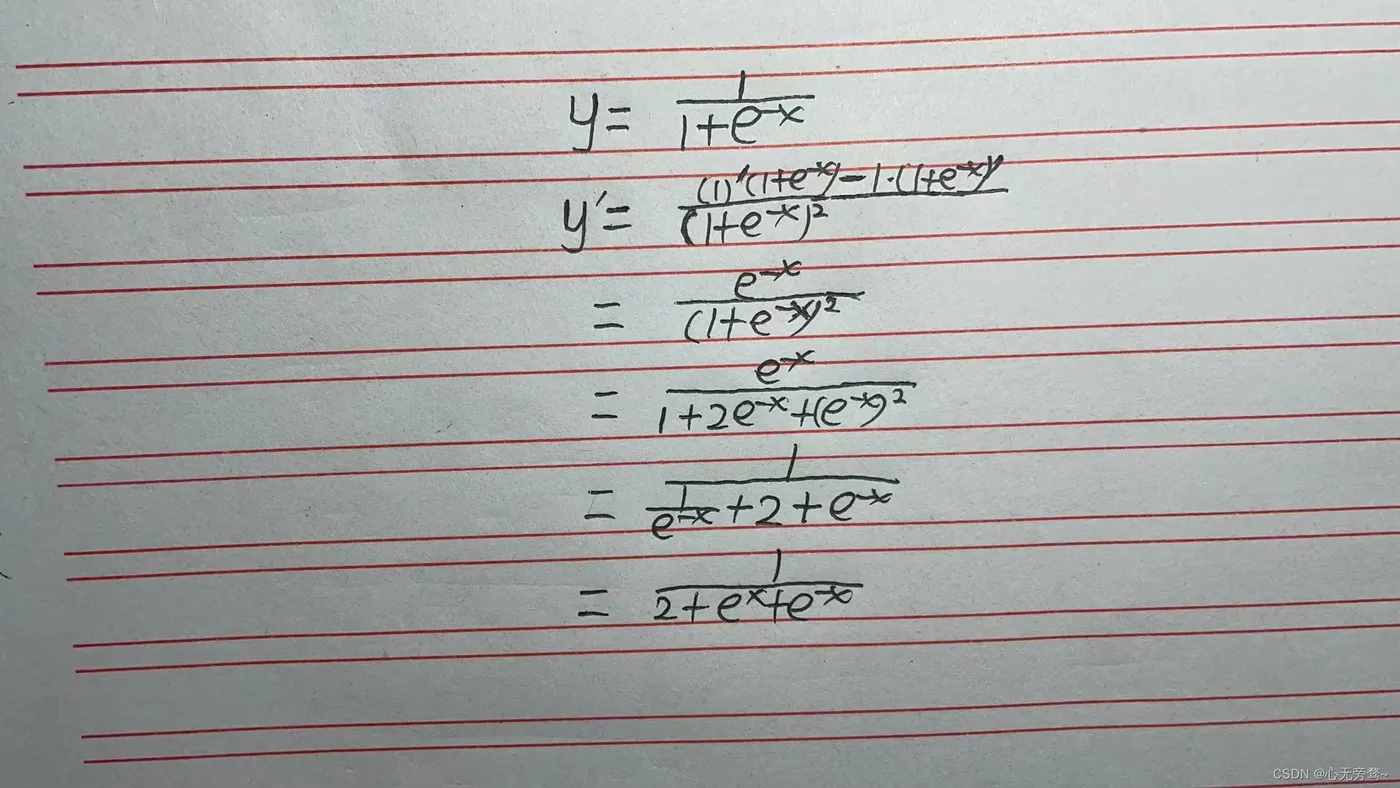 y = \frac{1}{1+e^{-x}}
y' = \frac{(1)'(1+e^{-x}) - 1·(1+e^{-x})'}{(1+e^{-x})^2}
= \frac{e^{-x}}{(1+e^{-x})^2}
= \frac{e^{-x}}{1+2e^{-x}+(e^{-x})^2}
= \frac{1}{\frac{1}{e^{-x}}+2+e^{-x}}
= \frac{1}{2+e^x+e^{-x}}
CSDN @心无旁骛~